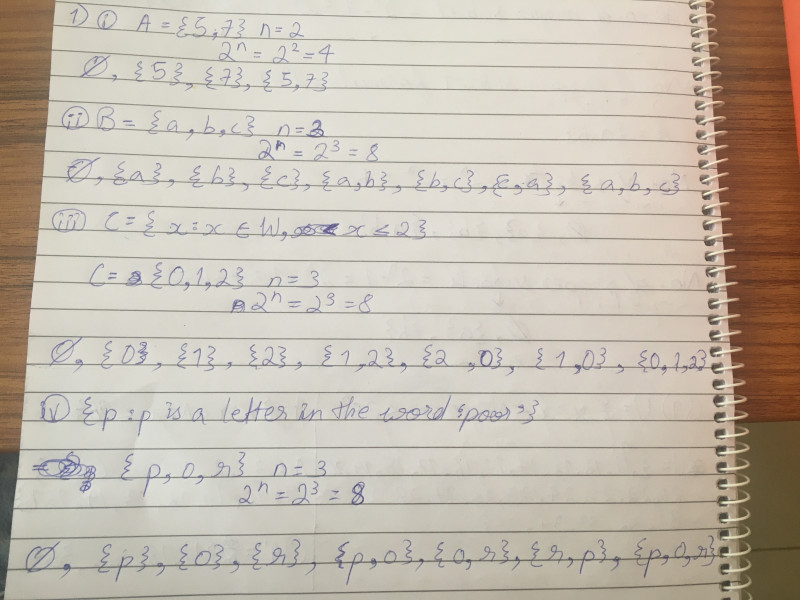 1) i A = {5,7} n = 2
2ⁿ = 2² = 4
∅, {5}, {7}, {5,7}
ii B = {a, b, c} n = 3
2ⁿ = 2³ = 8
∅, {a}, {b}, {c}, {a,b}, {b,c}, {c,a}, {a,b,c}
iii C = { x : x ∈ W, x ≤ 2}
C = {0,1,2} n = 3
2ⁿ = 2³ = 8
∅, {0}, {1}, {2}, {1,2}, {2,0}, {1,0}, {0,1,2}
iv {p : p is a letter in the word 'poor'}
{p,o,r} n = 3
2ⁿ = 2³ = 8
∅, {p}, {o}, {r}, {p,o}, {o,r}, {r,p}, {p,o,r}